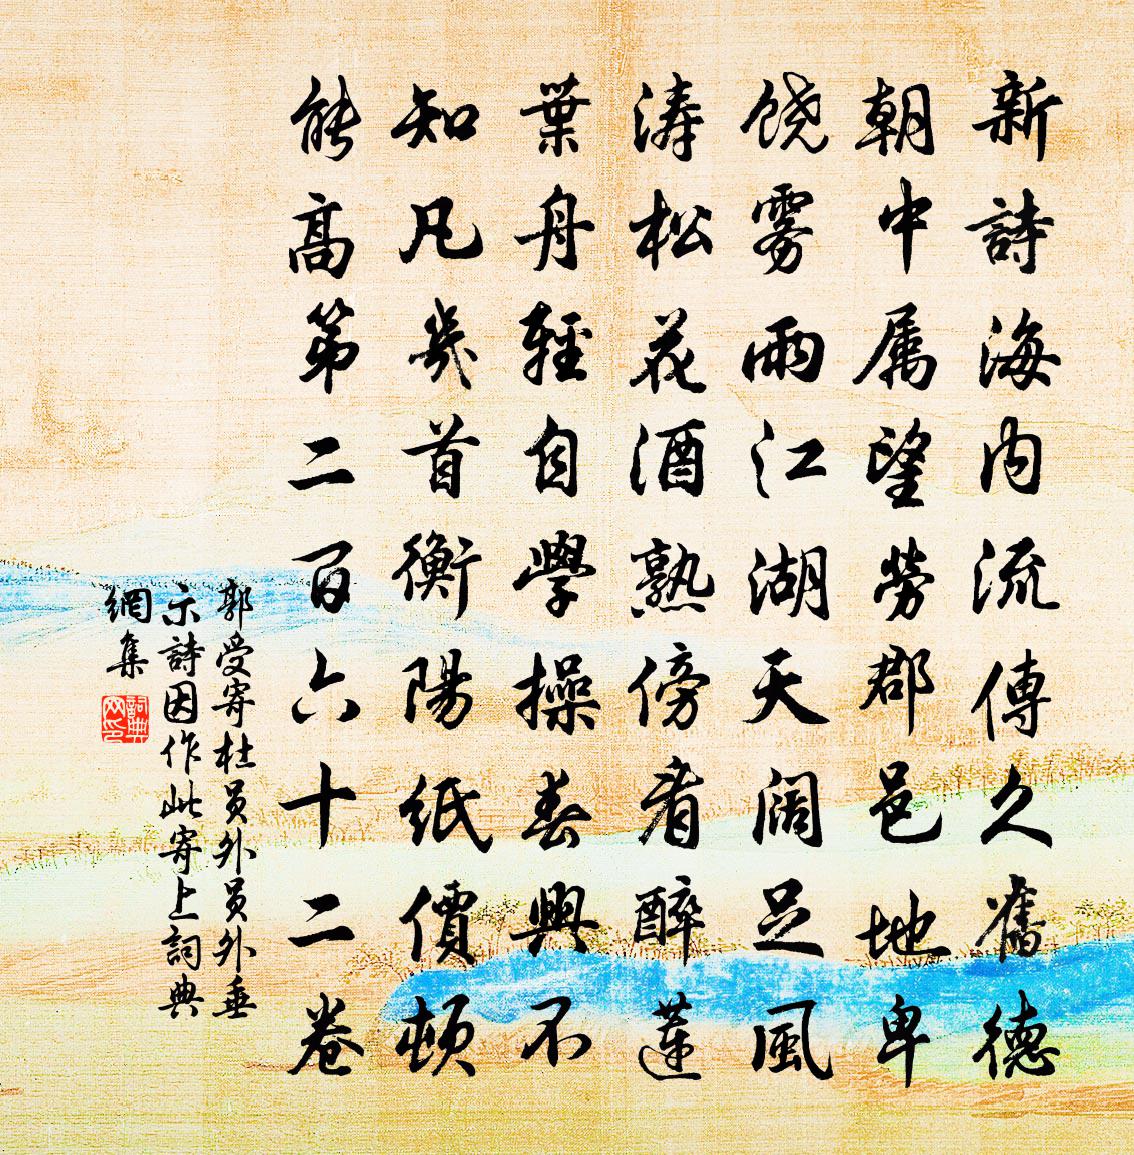 新詩海内流傳久舊德
朝中属望勞郡邑地卑
饶雾雨江湖天闊足風
涛松花酒熟傍看醉蓮
葉舟輕自學操春興不
知凡幾首衡陽紙價頓
能高第二百六十二卷
郭受寄杜員外員外垂
示詩因作此寄上詞典
網集
詞典
网印